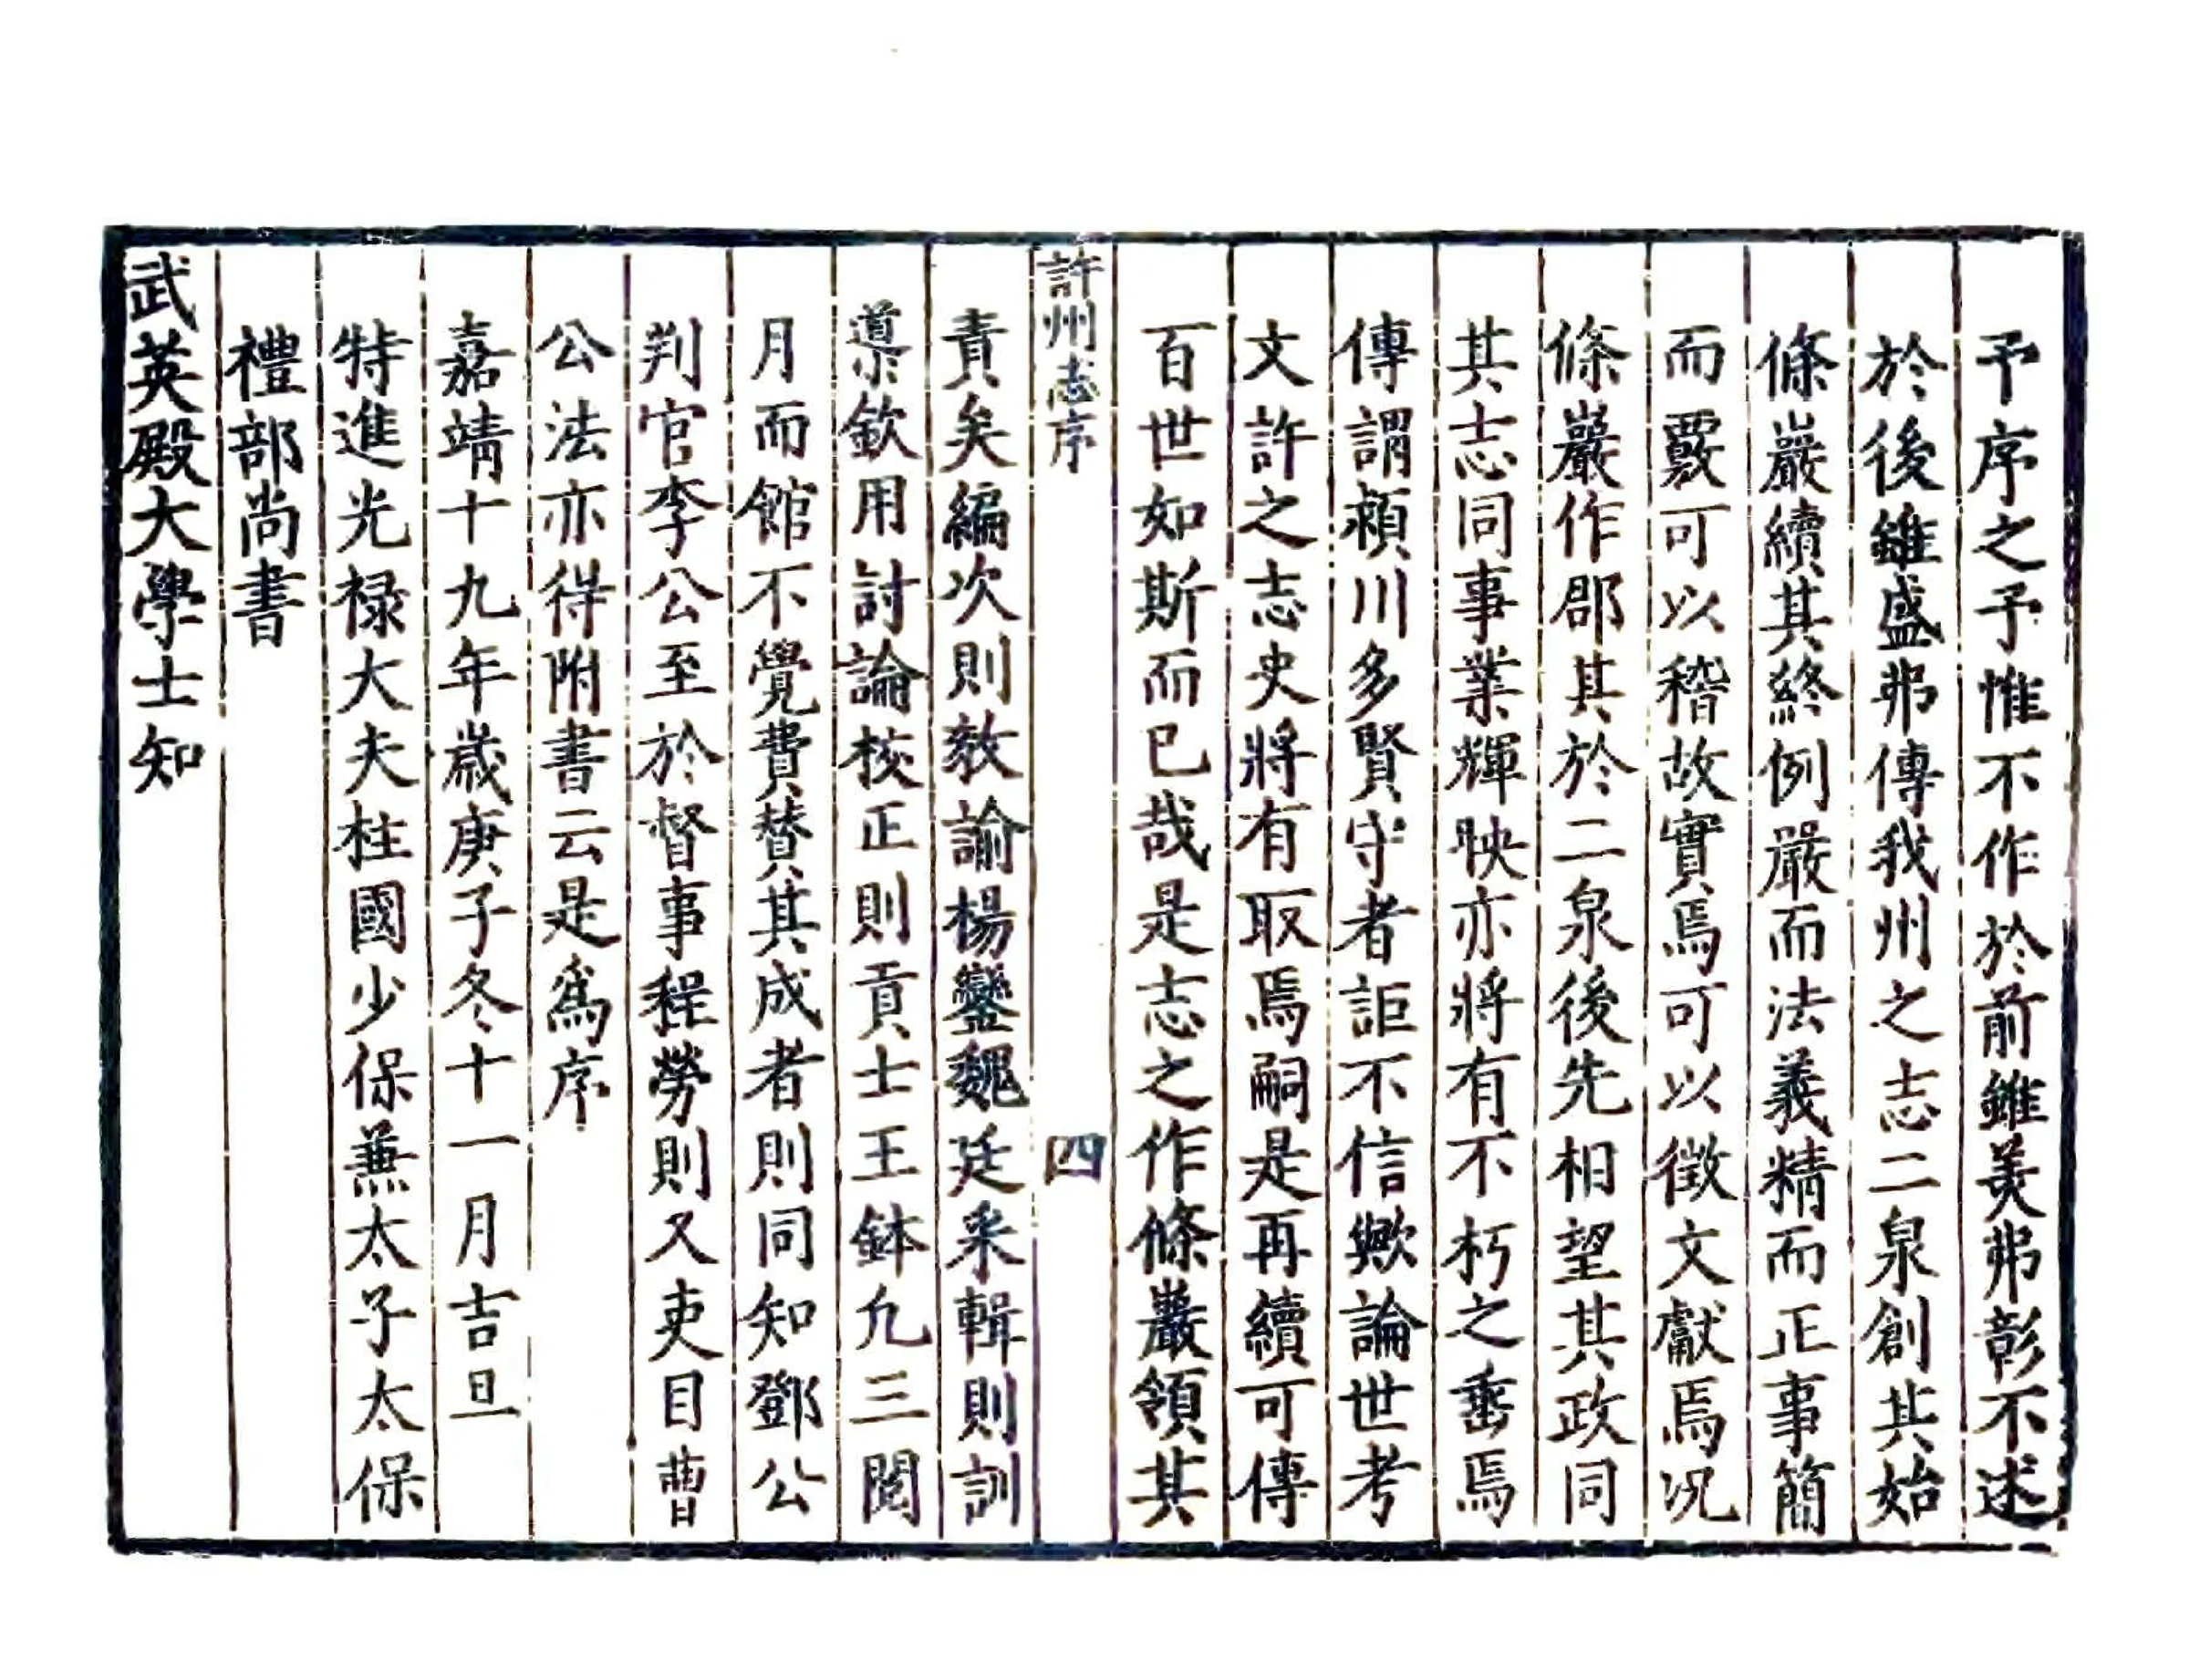 予序之予惟不作於前雖美弗彰不述
於後雖盛弗傳我州之志二泉創其始
條巖續其終例嚴而法義精而正事簡
而覈可以稽故實焉可以徵文獻焉况
條巖作郡其於二泉後先相望其政同
其志同事業輝映亦將有不朽之垂焉
傳謂潁川多賢守者詎不信歟論世考
文許之志史將有取焉嗣是再續可傳
百世如斯而已哉是志之作條巖領其
許州志序 四
責矣編次則教諭楊鑾魏廷采輯則訓
導欽用討論校正則貢士王鉢凢三閱
月而館不覺費賛其成者則同知鄧公
判官李公至於督事程勞則又吏目曹
公法亦得附書云是爲序
嘉靖十九年歲庚子冬十一月吉旦
特進光禄大夫柱國少保兼太子太保
禮部尚書
武英殿大學士知